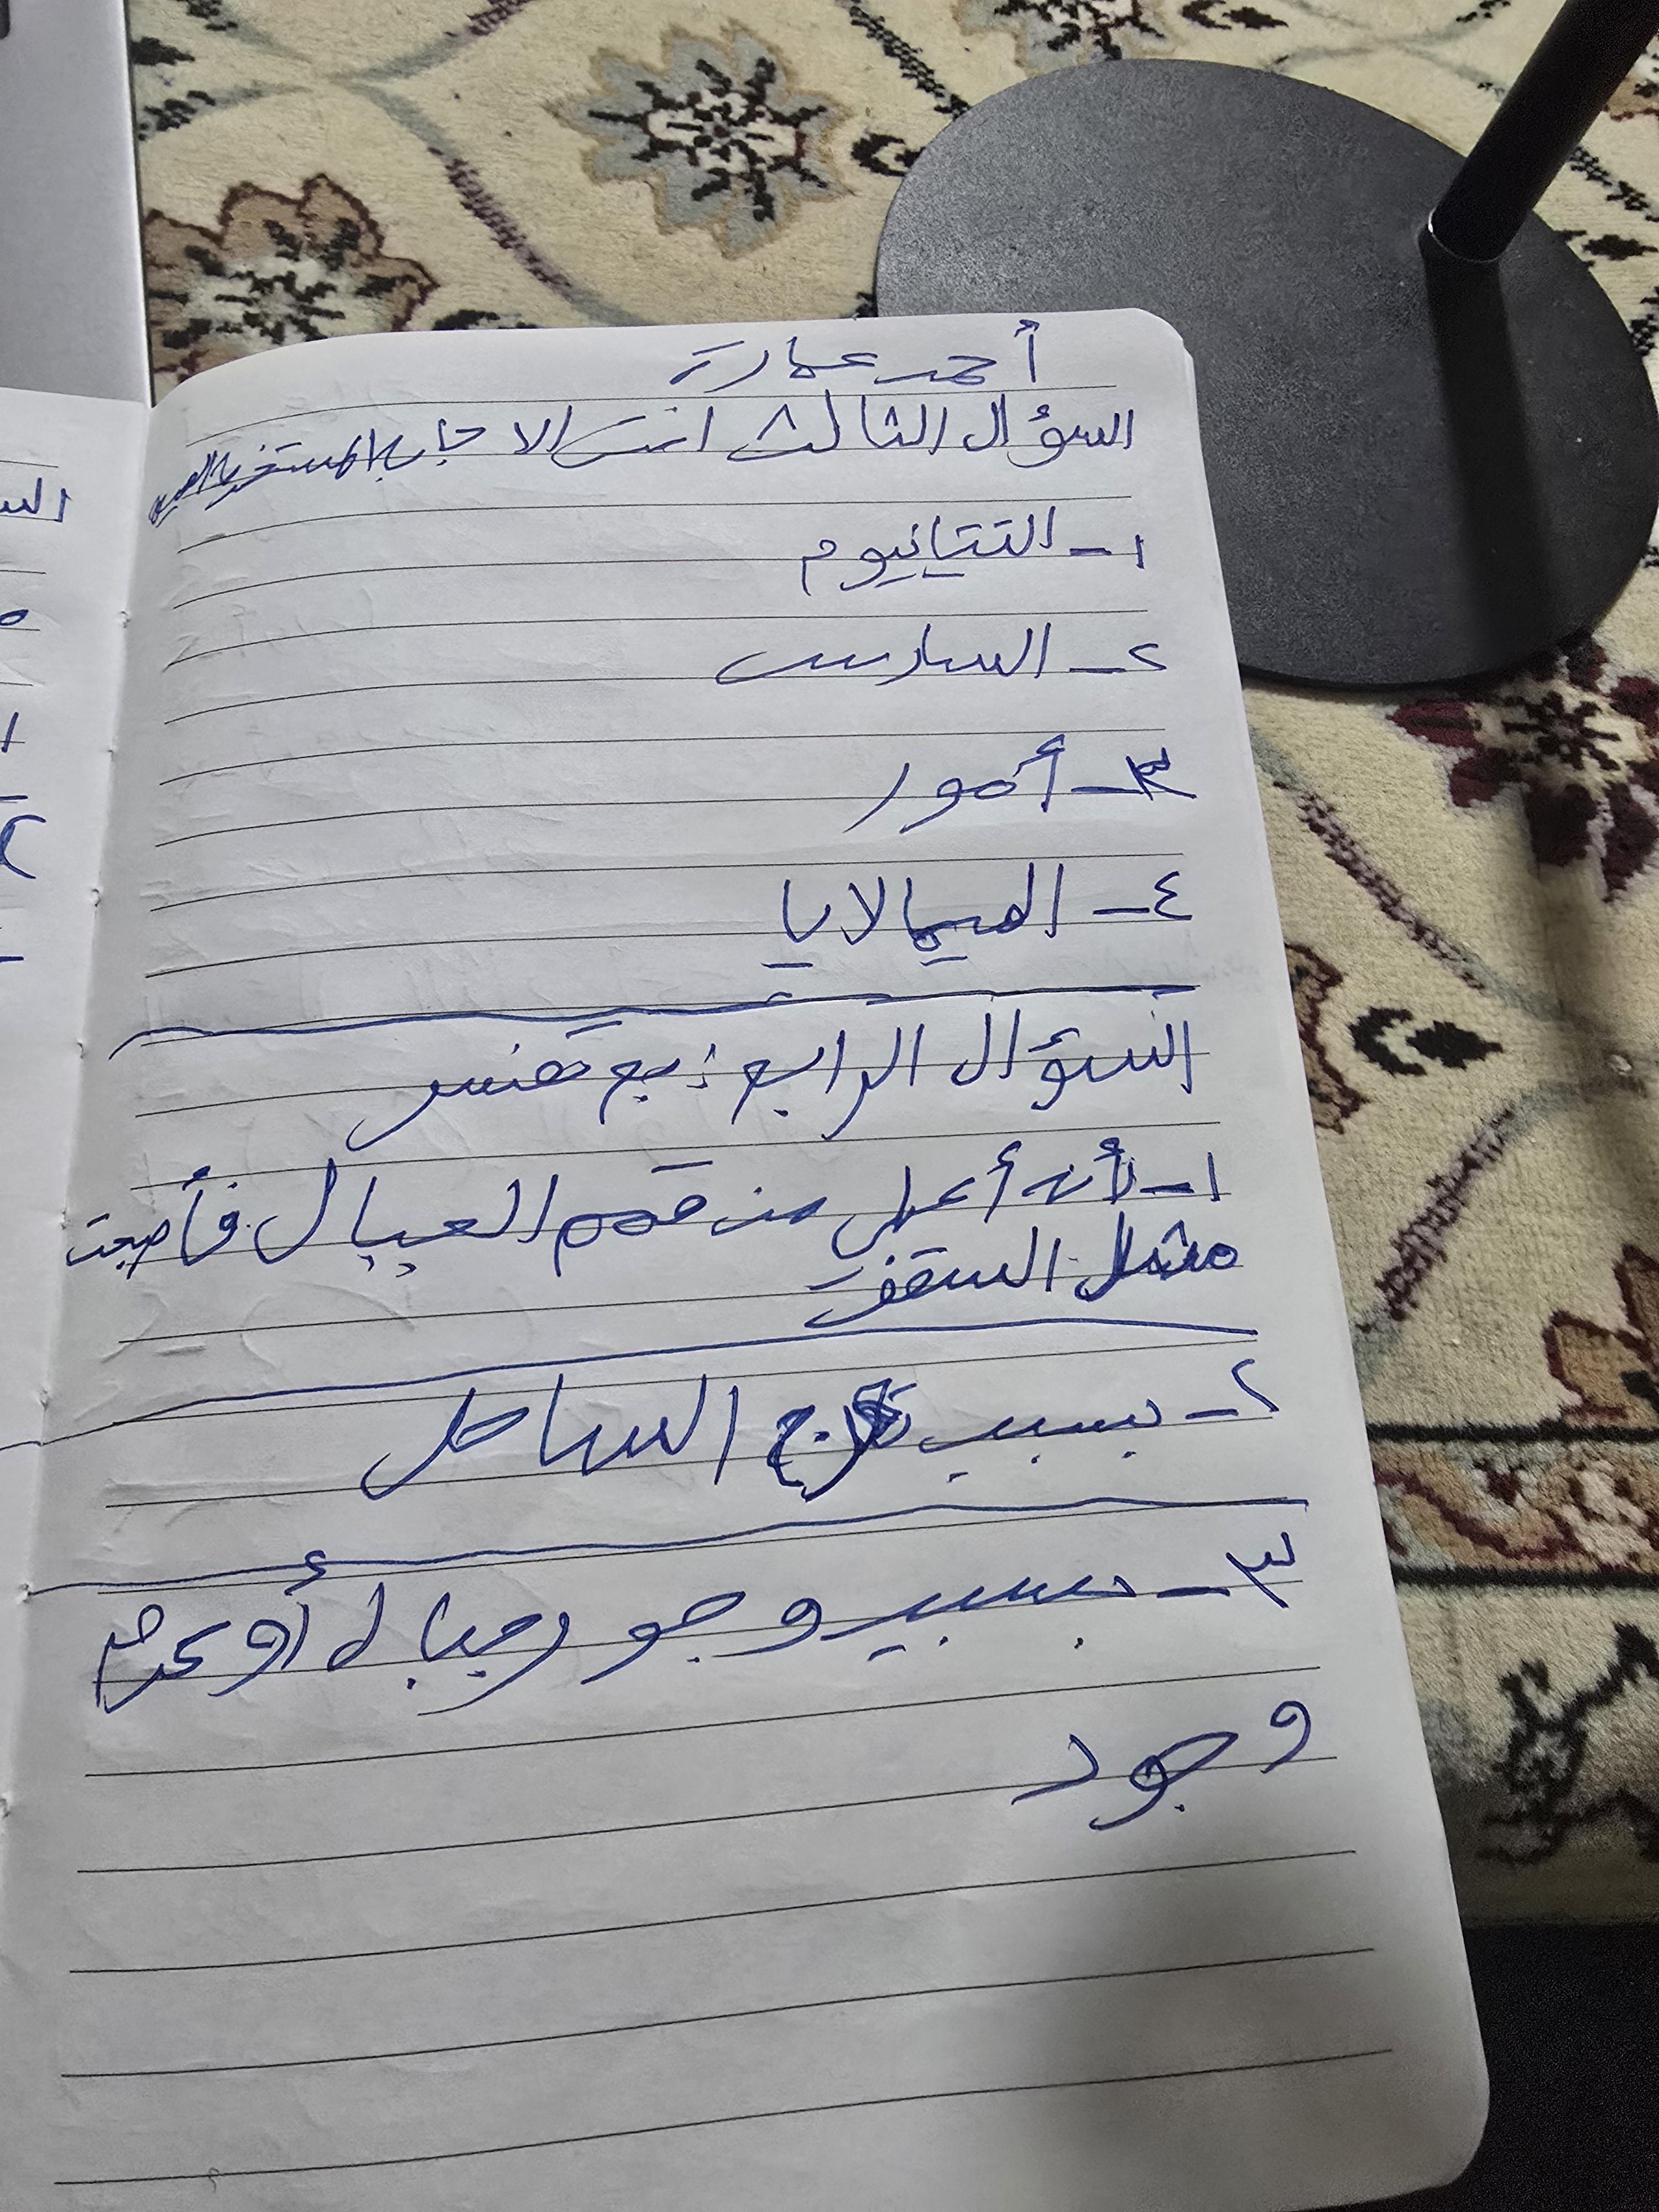 أحمد عمارة
السؤال الثالث اختر الاجابة المستخدمة
١- التتيانيوم
٢- السادس
٣- أمور
٤- الهيمالايا
السؤال الرابع : بع تفسر
١- لأنه أعلى من قمم الجبال فأصبحت
مثل السقف
٢- بسبب تعرج الساحل
٣- بسبب وجود جبال أو عدم
وجود